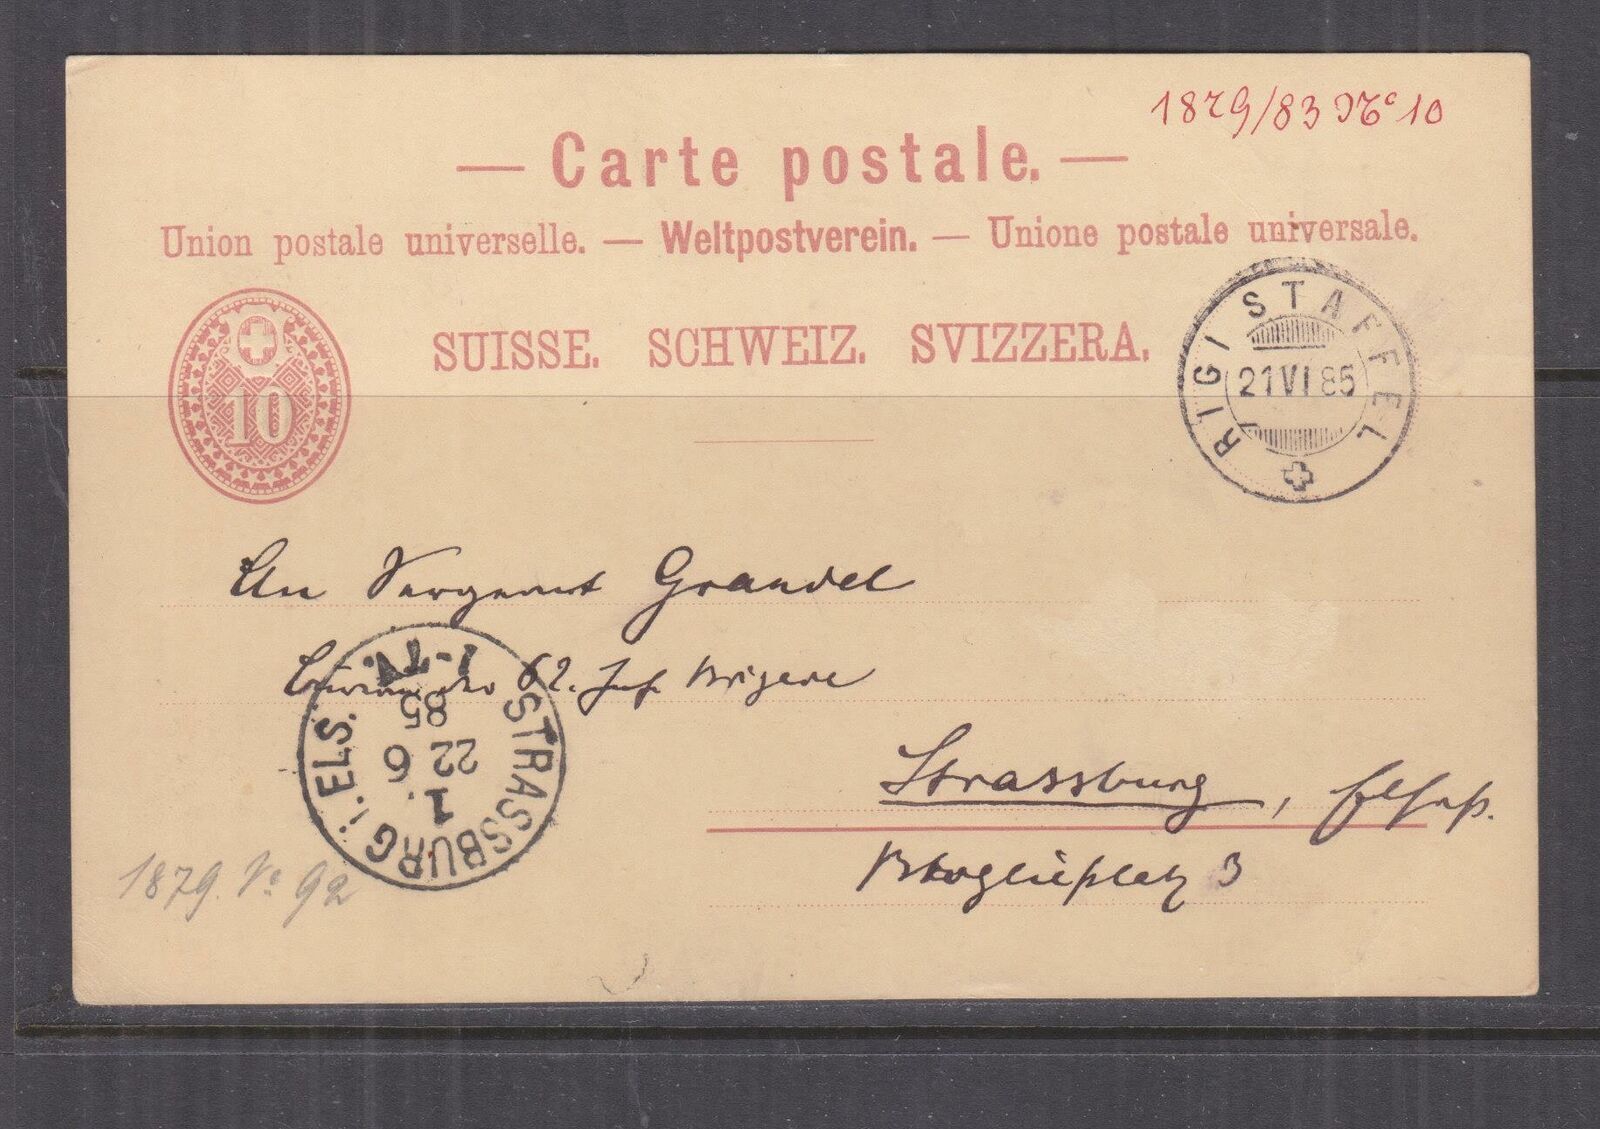 1879/83 No 10
— Carte postale. —
Union postale universelle. — Weltpostverein. — Unione postale universale.
SUISSE. SCHWEIZ. SVIZZERA.
10
RIGI STAFFEL
21 VI 85
An Sergeant Grandel
Bureau der 62. Inf. Brigade
Strassburg, Elsaß.
BrogliePlatz 3
STRASSBURG i. ELS.
1.
22 6
85
1-2N.
1879. No 92